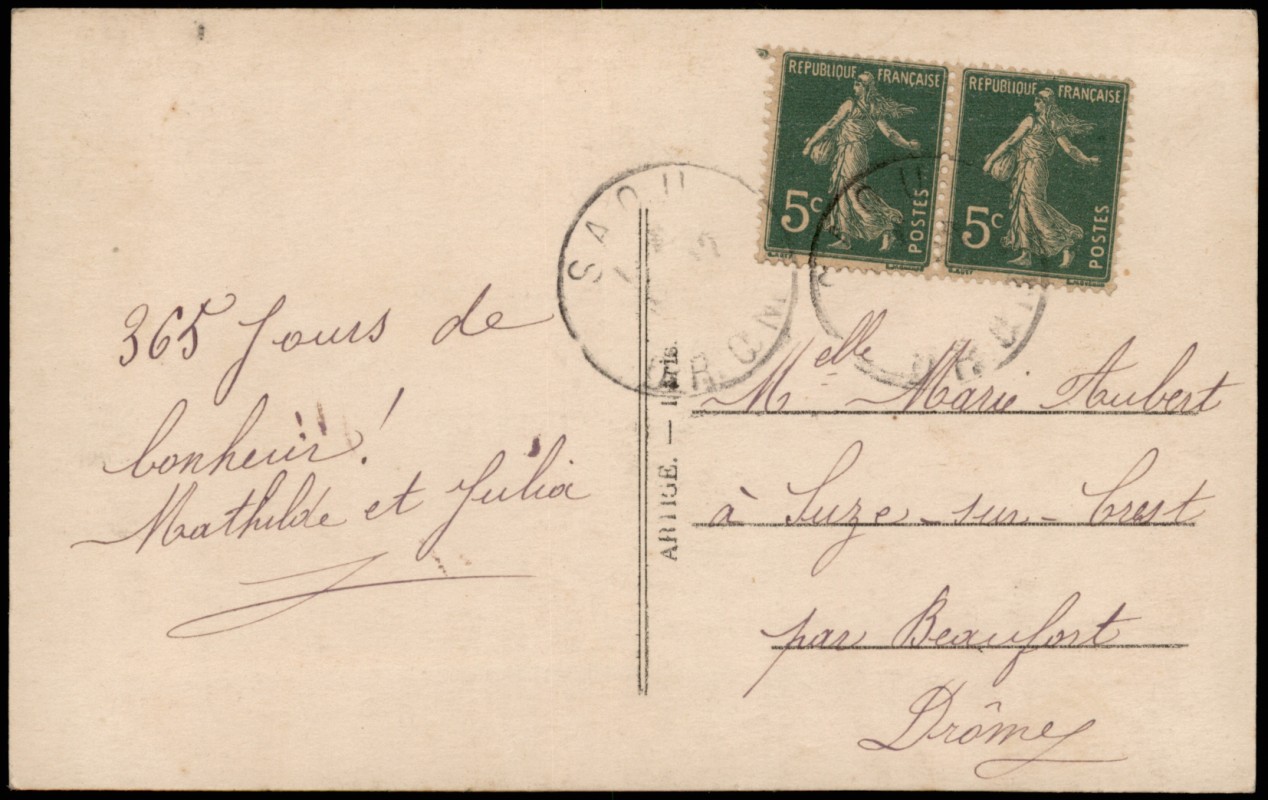 365 Jours de
bonheur!
Mathilde et Julia
ARTIGE. — Paris.
REPUBLIQUE FRANÇAISE
5c
POSTES
REPUBLIQUE FRANÇAISE
5c
POSTES
SAOU
DROME
Melle Marie Aubert
à Suze-sur-Crest
par Beaufort
Drôme